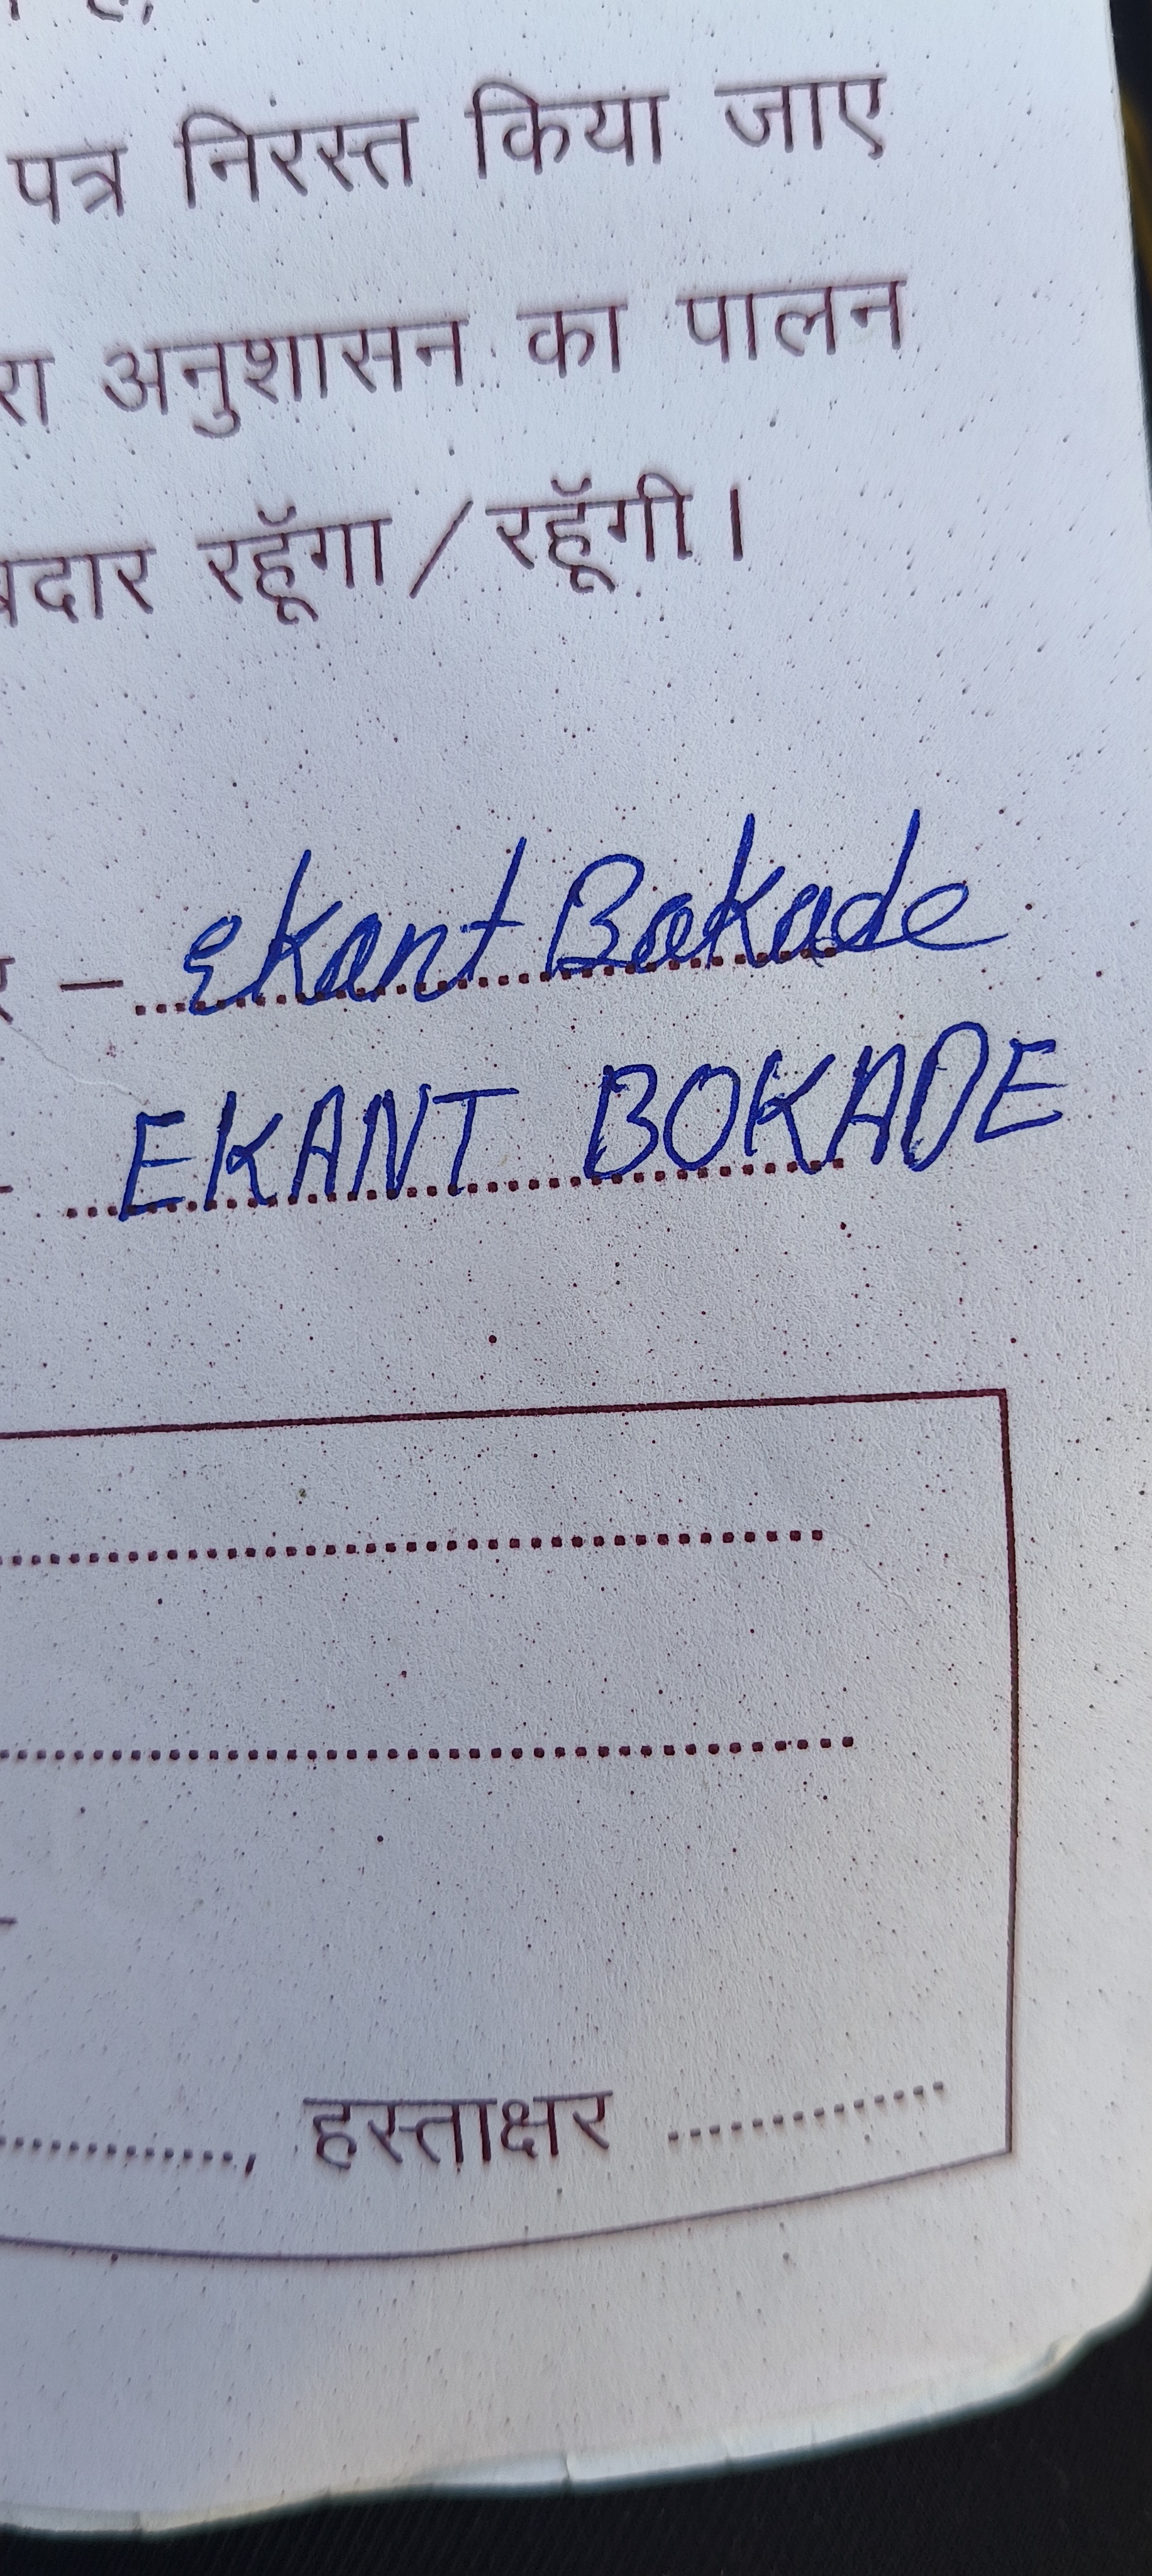 पत्र निरस्त किया जाए
अनुशासन का पालन
रहूॅंगा / रहूॅंगी।
– ekant Bokade
EKANT BOKADE
हस्ताक्षर